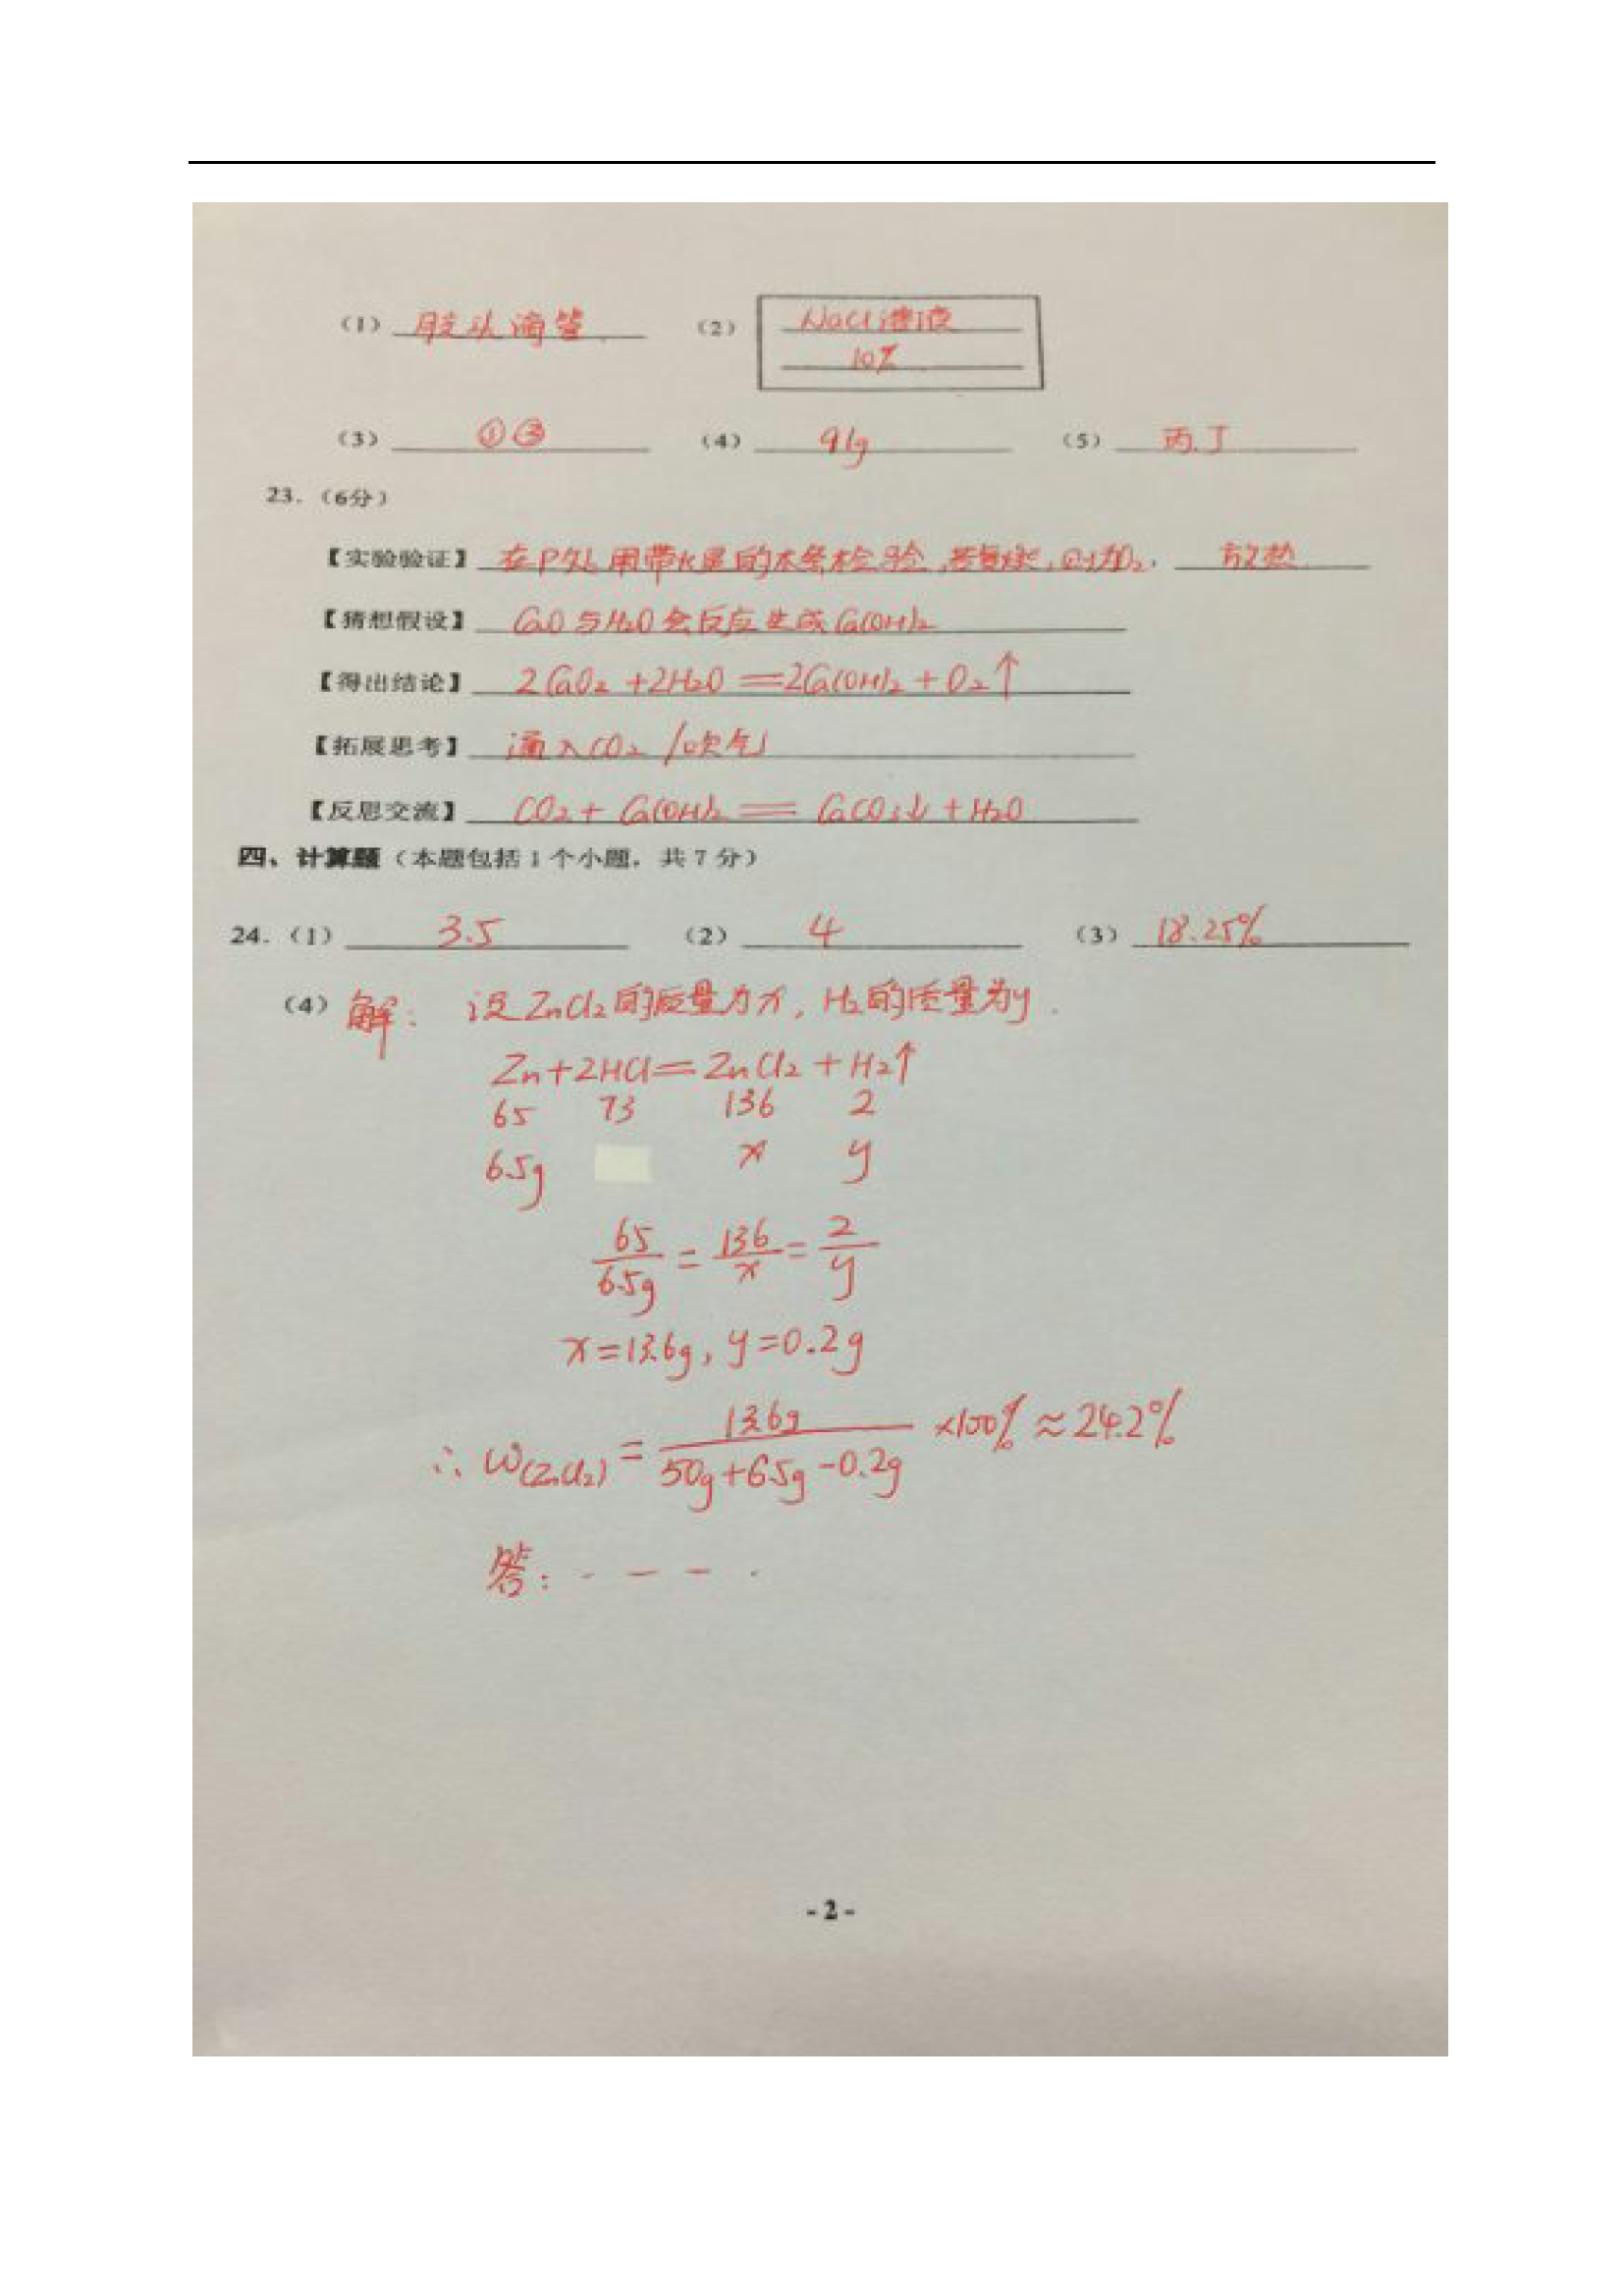 (1) 胶头滴管 (2) NaCl溶液
10%
(3) ①③ (4) 91g (5) 丙.丁
23.（6分）
【实验验证】在P处用带火星的木条检验,若复燃,则为O₂, 放热
【猜想假设】CaO与H₂O会反应生成Ca(OH)₂
【得出结论】2CaO₂+2H₂O=2Ca(OH)₂+O₂↑
【拓展思考】通入CO₂/吹气
【反思交流】CO₂+Ca(OH)₂=CaCO₃↓+H₂O
四、计算题（本题包括1个小题，共7分）
24.(1) 3.5 (2) 4 (3) 18.25%
(4) 解: 设ZnCl₂的质量为x, H₂的质量为y.
Zn+2HCl=ZnCl₂+H₂↑
65 73 136 2
6.5g x y
65/6.5g=136/x=2/y
x=13.6g, y=0.2g
∴ω(ZnCl₂)=13.6g/(50g+6.5g-0.2g)×100%≈24.2%
答: · — — ·
- 2 -